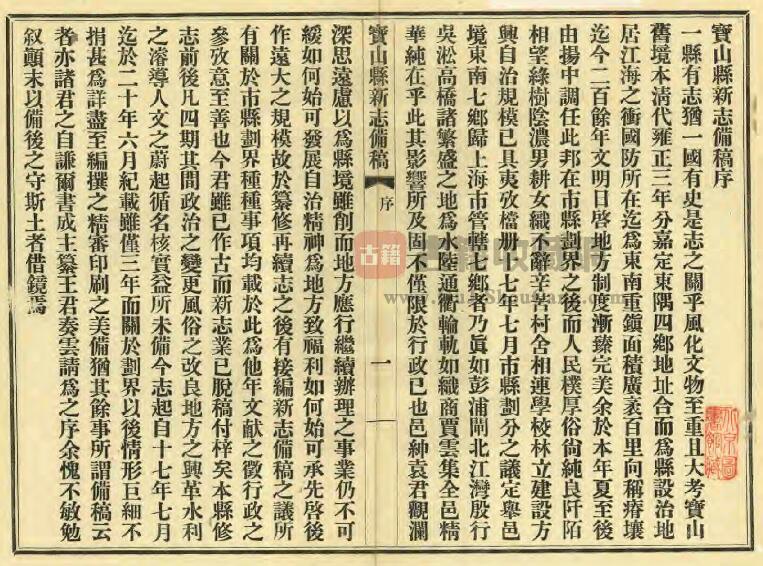 寶山縣新志備稿序
一縣有志猶一國有史是志之關乎風化文物至重且大考寶山
舊境本清代雍正三年分嘉定東隅四鄉地址合而爲縣設治地
居江海之衝國防所在迄爲東南重鎭面積廣袤百里向稱瘠壤
迄今二百餘年文明日啓地方制度漸臻完美余於本年夏至後
由揚中調任此邦在市縣劃界之後而人民樸厚俗尙純良阡陌
相望綠樹陰濃男耕女織不辭辛苦村舍相連學校林立建設方
興自治規模已具夷攷檔册十七年七月市縣劃分之議定舉邑
境東南七鄉歸上海市管轄七鄉者乃眞如彭浦閘北江灣殷行
吳淞高橋諸繁盛之地爲水陸通衢輪軌如織商賈雲集全邑精
華純在乎此其影響所及固不僅限於行政已也邑紳袁君觀瀾
寶山縣新志備稿
序
一
深思遠慮以爲縣境雖創而地方應行繼續辦理之事業仍不可
緩如何始可發展自治精神爲地方致福利如何始可承先啓後
作遠大之規模故於纂修再續志之後有接編新志備稿之議所
有關於市縣劃界種種事項均載於此爲他年文獻之徵行政之
參攷意至善也今君雖已作古而新志業已脫稿付梓矣本縣修
志前後凡四期其間政治之變更風俗之改良地方之興革水利
之濬導人文之蔚起循名核實益所未備今志起自十七年七月
迄於二十年六月紀載雖僅三年而關於劃界以後情形巨細不
捐甚爲詳盡至編撰之精審印刷之美備猶其餘事所謂備稿云
者亦諸君之自謙爾書成主纂王君奏雲請爲之序余愧不敏勉
叙顚末以備後之守斯土者借鏡焉
古籍